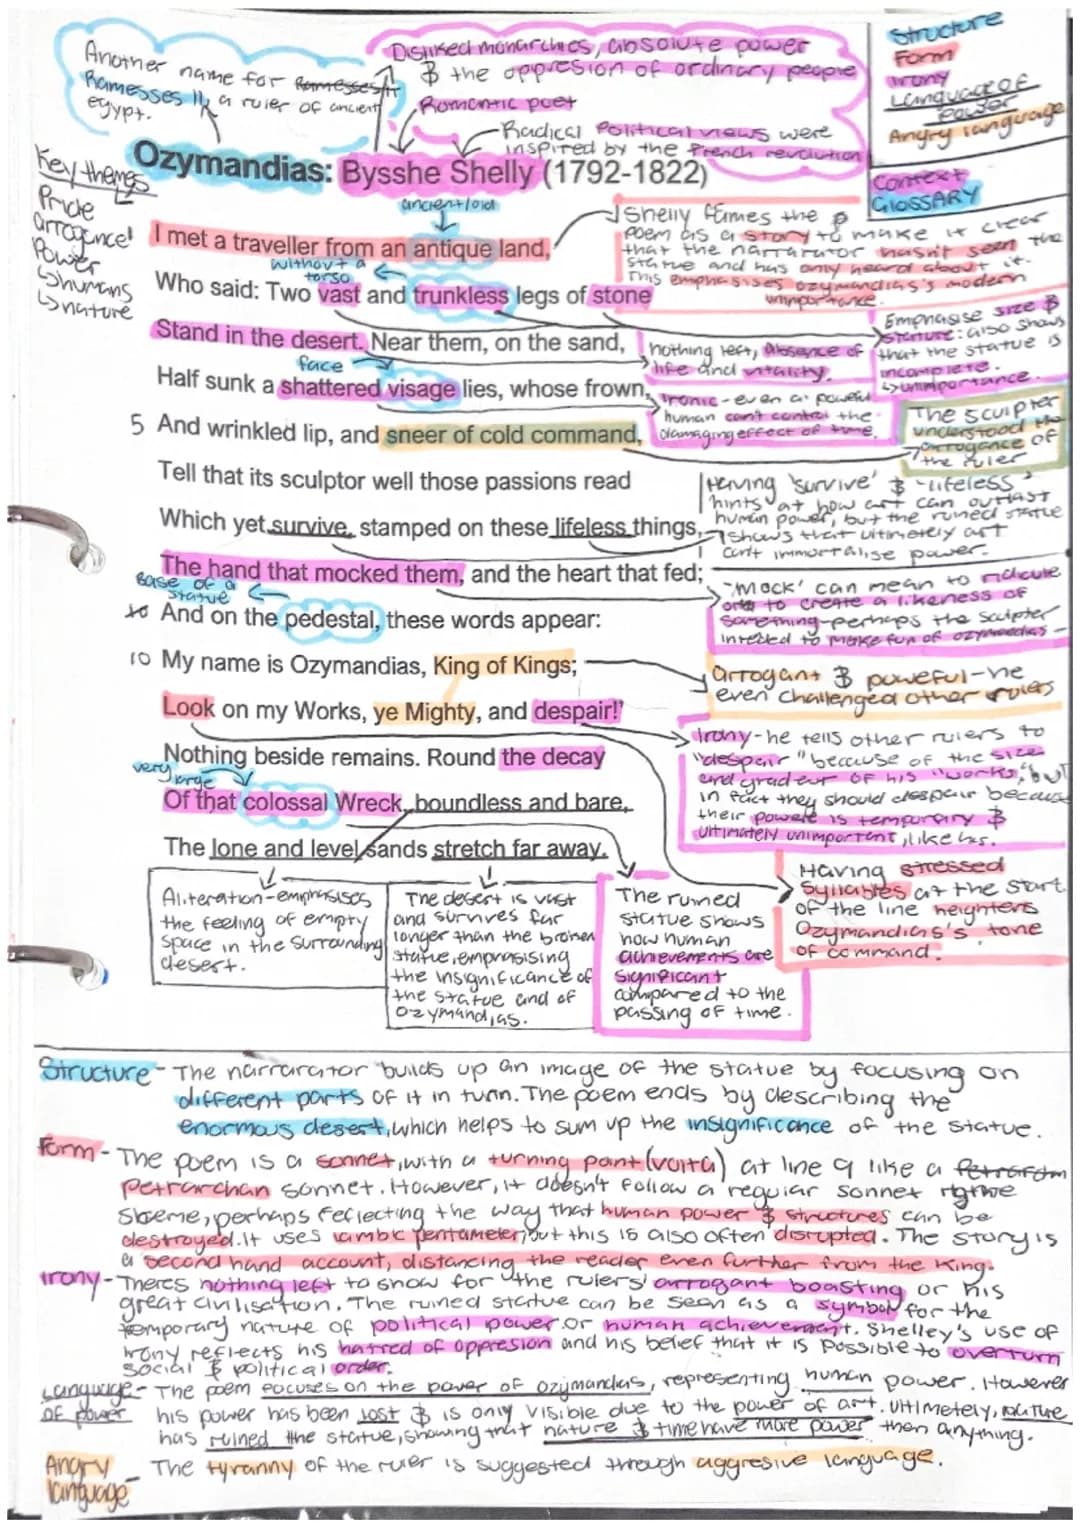 Another name for Ramesses II
Ramesses II, a ruler of ancient
egypt.
Disliked monarchies, absolute power
& the oppresion of ordinary people
Romantic poet
Radical Political views were
inspired by the French revolution
Structure
Form
Irony
Language of
Power
Angry language
Context
GLOSSARY
Key themes
Pride
arrogance!
Power
↳humans
↳nature
Ozymandias: Bysshe Shelly (1792-1822)
ancient/old
I met a traveller from an antique land,
Shelly fames the
poem as a story to make it clear
that the narrarator hasn't seen the
statue and has only heard about it.
This emphasises ozymandias's modern
unimportance.
without a
torso
Who said: Two vast and trunkless legs of stone
Emphasise size &
stature: also shows
that the statue is
incomplete.
↳unimportance.
Stand in the desert. Near them, on the sand,
nothing left, Absence of
life and vitality.
face
Half sunk a shattered visage lies, whose frown,
Ironic - even a powerful
human can't control the
damaging effect of time.
5 And wrinkled lip, and sneer of cold command,
The sculpter
understood the
arrogance of
the ruler
Tell that its sculptor well those passions read
Having 'survive' & 'lifeless'
hints at how art can outlast
human power, but the ruined statue
shows that ultimetely art
can't immortalise power.
Which yet survive, stamped on these lifeless things,
The hand that mocked them, and the heart that fed;
'mock' can mean to ridicule
or to create a likeness of
something - perhaps the sculpter
inteded to make fun of ozymandias
Base of a
statue
10 And on the pedestal, these words appear:
10 My name is Ozymandias, King of Kings;
arrogant & powerful - he
even challenged other rulers
Look on my Works, ye Mighty, and despair!'
Irony - he tells other rulers to
"despair" because of the size
and gradeur of his "works", but
in fact they should despair because
their powere is temporary &
ultimately unimportent, like his.
Nothing beside remains. Round the decay
very large
Of that colossal Wreck, boundless and bare,
The lone and level sands stretch far away.
Aliteration - emphasises
the feeling of empty
space in the surrounding
desert.
The desert is vast
and survives far
longer than the broken
statue, emphasising
the insignificance of
the statue and of
Ozymandias.
The ruined
statue shows
how human
achievements are
significant
compared to the
passing of time.
Having stressed
syllables at the start
of the line heightens
Ozymandias's tone
of command.
Structure - The narrarator builds up an image of the statue by focusing on
different parts of it in turn. The poem ends by describing the
enormous desert, which helps to sum up the insignificance of the statue.
Form - The poem is a sonnet, with a turning point (volta) at line 9 like a
petrarchan sonnet. However, it doesn't follow a regular sonnet
sheme, perhaps reflecting the way that human power & structures can be
destroyed. It uses iambic pentameter, but this is also often disrupted. The story is
a second hand account, distancing the reader even further from the King.
Irony - Theres nothing left to show for the rulers arrogant boasting or his
great civilisation. The ruined startue can be seen as a symbol for the
temporary nature of political power or human achievement. Shelley's use of
Irony reflects his hatred of oppresion and his belief that it is possible to overturn
social & political order.
Language - The poem focuses on the power of ozymandias, representing human power. However
of power his power has been lost & is only visible due to the power of art. Ultimetely, nature
has ruined the statue, showing that nature & time have more power then anything.
Angry - The tyranny of the ruler is suggested through aggresive language.
language